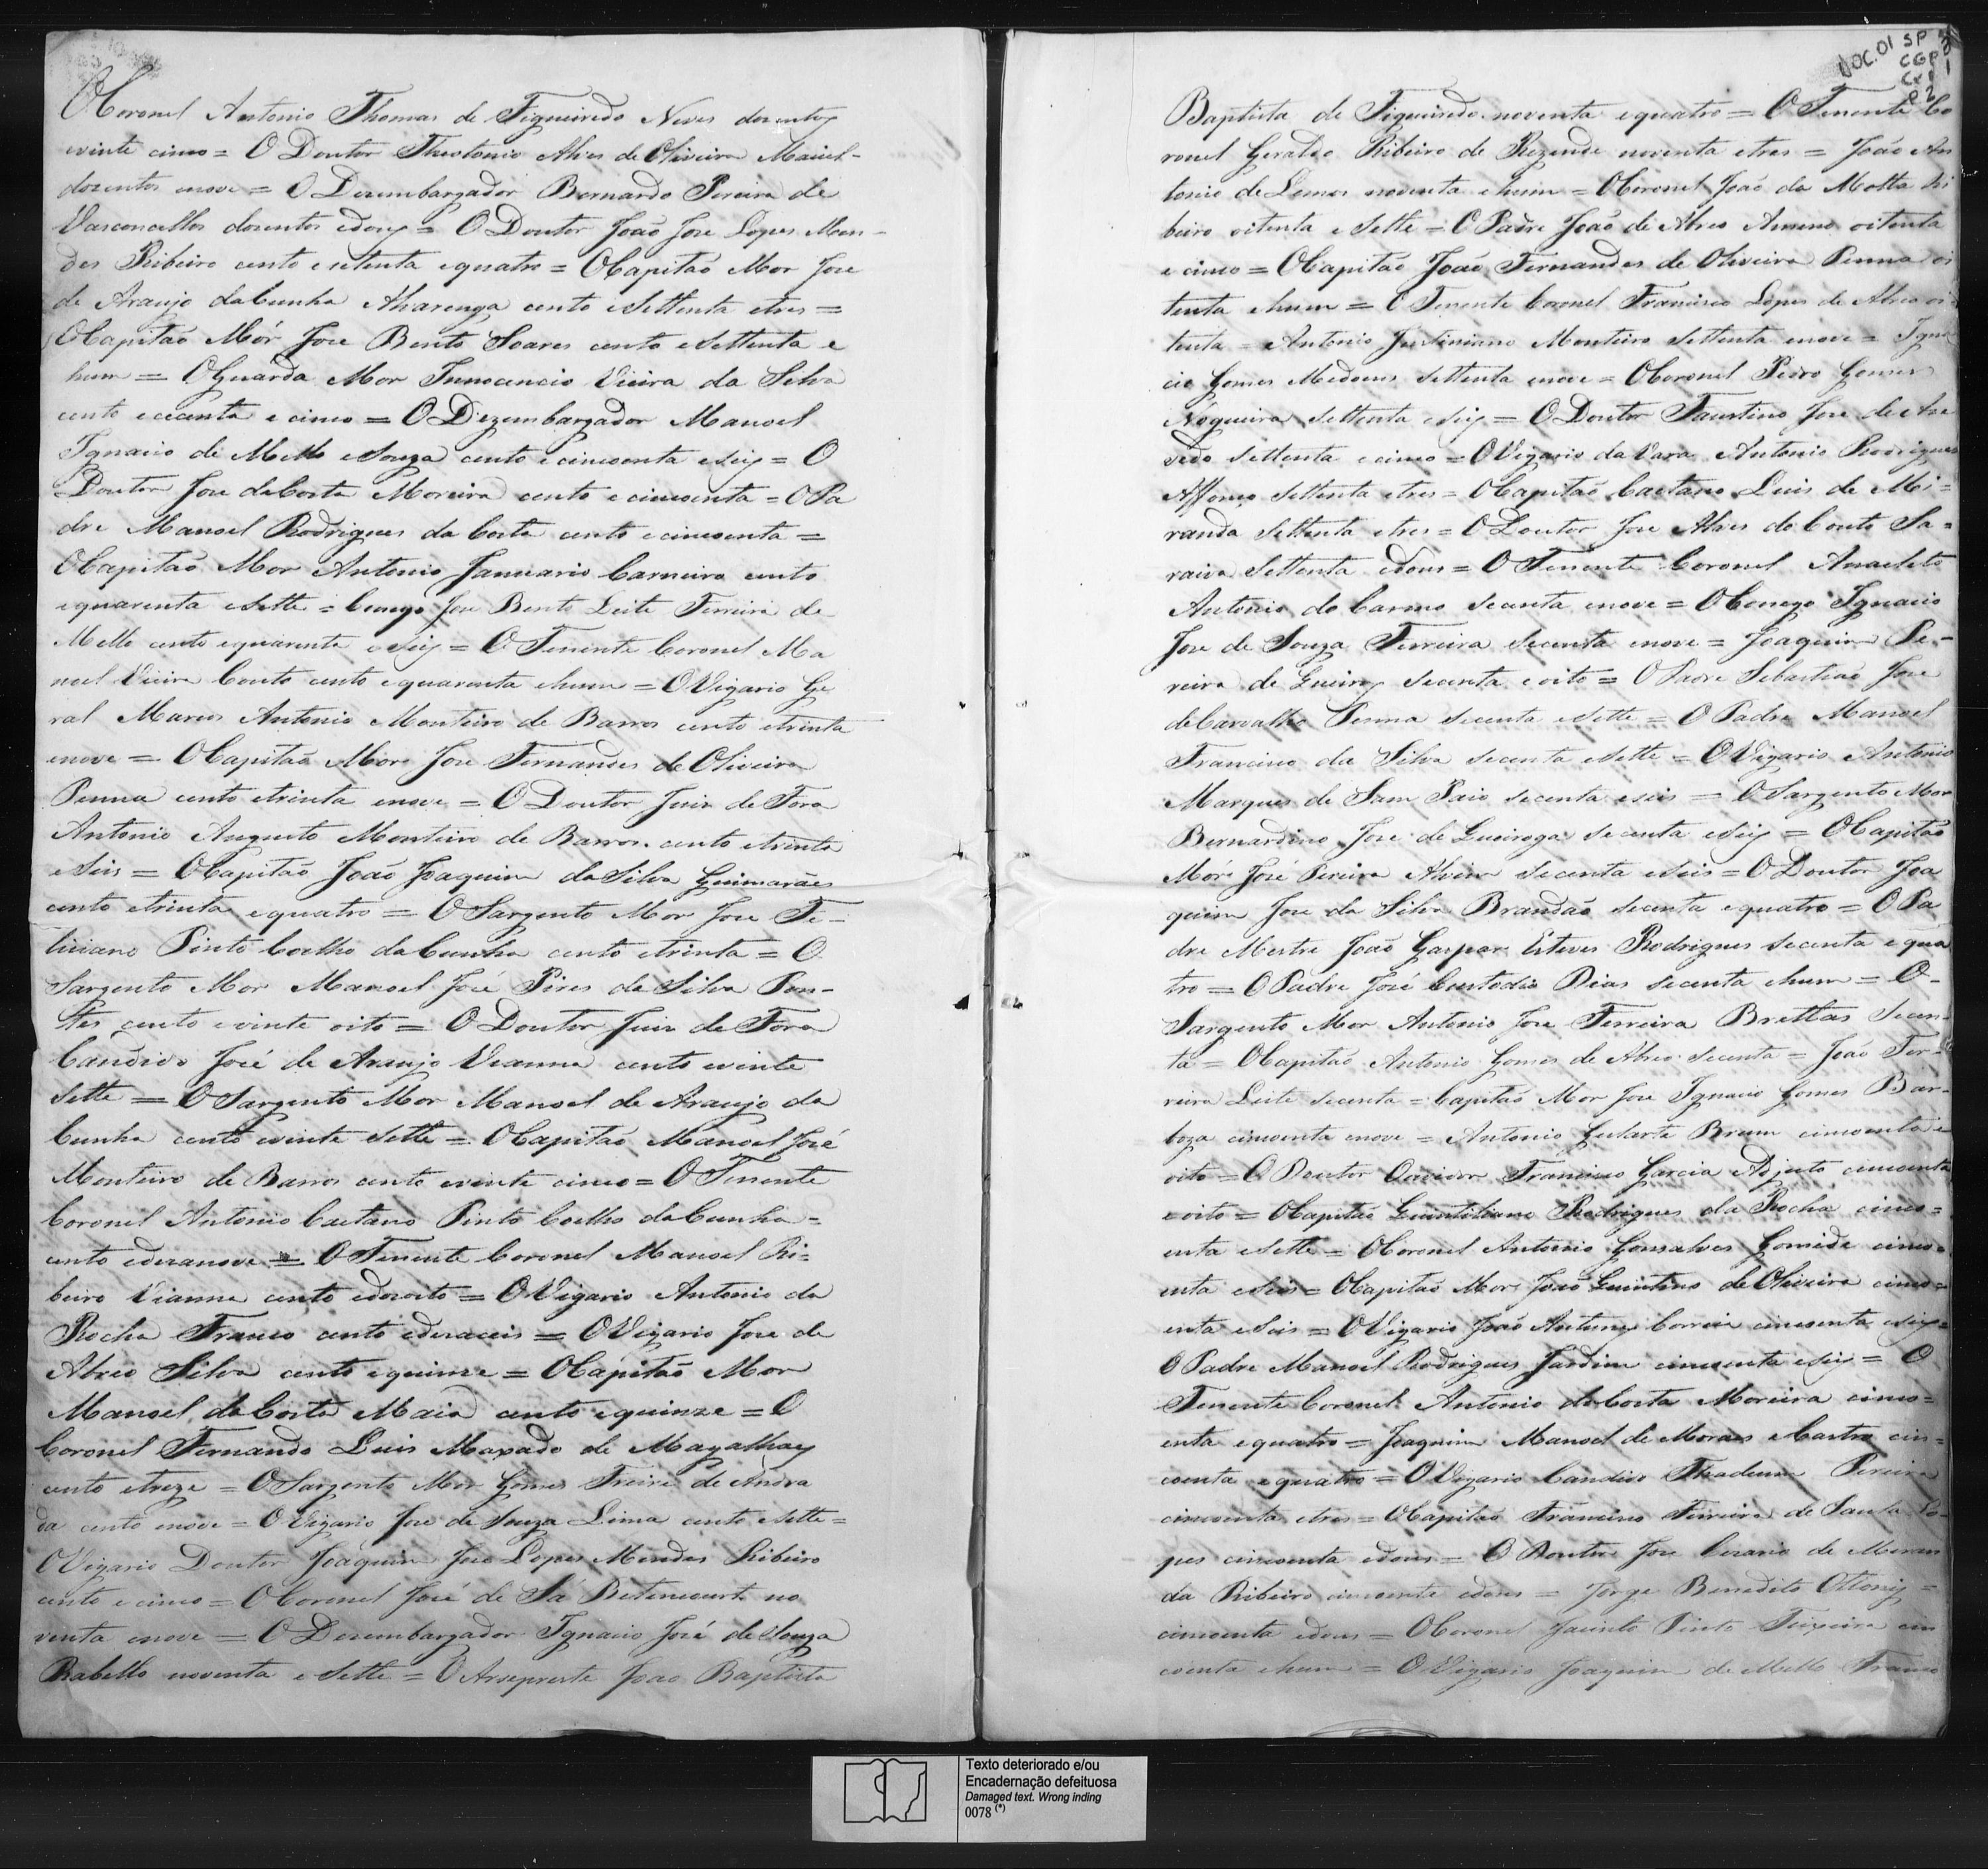 O Coronel Antonio Thomas de Figueiredo Neves dozentos
evinte cinco = O Doutor Theotonio Alves de Oliveira Maciel -
dozentos enove = O Dezembargador Bernardo Pereira de
Vasconcellos dozentos edous = O Doutor João Jose Lopes Men -
des Ribeiro cento esetenta equatro = O Capitão Mor Jose
de Araujo da Cunha Alvarenga cento eSettenta etres =
O Capitão Mór Jose Bento Soares cento eSettenta e
hum = O Guarda Mor Innocencio Vieira da Silva
cento ececenta e cinco = O Dezembargador Manoel
Ignacio de Mello eSouza cento e cincoenta eSeis = O
Doutor Jose da Costa Moreira cento e cincoenta = O Pa
dre Manoel Rodrigues da Costa cento ecincoenta =
O Capitão Mor Antonio Januario Carneiro cento
equarenta eSette = Conego Jose Bento Leite Ferreira de
Mello cento equarenta eSeis = O Tenente Coronel Ma
noel Vieira Couto cento equarenta ehum = O Vigario Ge
ral Marcos Antonio Monteiro de Barros cento etrinta
enove = O Capitão Mor Jose Fernandes de Oliveira
Penna cento etrinta enove = O Doutor Juiz de Fora
Antonio Augusto Monteiro de Barros cento etrinta
eSeis = O Capitão João Joaquim da Silva Guimarães
cento etrinta equatro = O Sargento Mor Jose Fe -
liciano Pinto Coelho da Cunha cento etrinta = O
Sargento Mor Manoel José Pires da Silva Pon -
tes cento evinte oito = O Doutor Juiz de Fora
Candido José de Araujo Vianna cento evinte
Sette = O Sargento Mor Manoel de Araujo da
Cunha cento evinte Sette = O Capitão Manoel José
Monteiro de Barros cento evinte cinco = O Tenente
Coronel Antonio Caetano Pinto Coelho da Cunha =
cento edezanove = O Tenente Coronel Manoel Ri =
beiro Vianna cento edezoito = O Vigario Antonio da
Rocha Franco cento edezaceis = O Vigario Jose de
Abreo Silva cento equinze = O Capitão Mor
Manoel da Costa Maia cento equinze = O
Coronel Fernando Luis Maxado de Magalhaes
cento etreze = O Sargento Mor Gomes Freire de Andra
da cento enove = O Vigario Jose de Souza Lima cento eSette =
O Vigario Doutor Joaquim Jose Lopes Mendes Ribeiro
cento e cinco = O Coronel José de Sá Betencourt no
venta enove = O Dezembargador Ignacio José de Souza
Rabello noventa eSette = O Arsepreste Joao Baptista
DOC. 01 SP
CGP
Cx 1
P 2
Baptista de Figueiredo noventa equatro = O Tenente Co
ronel Geraldo Ribeiro de Rezende noventa etres = João An
tonio de Lemos noventa ehum = O Coronel João da Motta Ri
beiro oitenta eSette = O Padre João de Abreo oitenta
e cinco = O Capitão João Fernandes de Oliveira Penna oi
tenta ehum = O Tenente Coronel Francisco Lopes de Abreo oi
tenta = Antonio Justiniano Monteiro Settenta enove = Igna
cio Gomes Settenta enove = O Coronel Pedro Gomes
Nogueira Settenta eSeis = O Doutor Faustino Jose de Aze
vedo Settenta ecinco = O Vigario da Vara Antonio Rodrigues
Affonço Settenta etres = O Capitão Caetano Luis de Mi =
randa Settenta etres = O Doutor Jose Alves do Couto Sa =
raiva Settenta edous = O Tenente Coronel Anacleto
Antonio do Carmo Secenta enove = O Conego Ignacio
Jose de Souza Ferreira Secenta enove = Joaquim Pe -
reira de Queiros Secenta eoito = O Padre Sebastião Jose
de Carvalho Penna Secenta eSette = O Padre Manoel
Francisco da Silva Secenta eSette = O Vigario Antonio
Marques de Sam Paio Secenta eseis = O Sargento Mor
Bernardino Jose de Queiroga Secenta eSeis = O Capitão
Mór José Pereira Alvim Secenta eSeis = O Doutor Joa
quim Jose da Silva Brandão Secenta equatro = O Pa
dre Mestre João Gaspar Esteves Rodrigues Secenta equa
tro = O Padre José Custodio Dias Secenta ehum = O -
Sargento Mor Antonio Jose Ferreira Brettas Secen -
ta = O Capitão Antonio Gomes de Abreo Secenta = João Fer -
reira Leite Secenta = Capitão Mor Jose Ignacio Gomes Bar -
boza cincoenta enove = Antonio Gularte Brum cincoenta e
oito = O Doutor Ouvidor Francisco Garcia Adjuto cincoenta
eoito = O Capitão Quintiliano Rodrigues da Rocha cinco =
enta eSette = O Coronel Antonio Gonsalves Gomide cinco =
enta eSeis = O Capitão Mor João Quintino de Oliveira cinco =
enta eSeis = O Vigario João Antunes Correia cincoenta eSeis =
O Padre Manoel Rodrigues Jardim cincoenta eSeis = O
Tenente Coronel Antonio da Costa Moreira cinco =
enta equatro = Joaquim Manoel de Moraes eCastro cin =
coenta equatro = O Vigario Candido Thadeum Pereira
cincoenta etres = O Capitão Francisco Ferreira de Santa Lo -
pes cincoenta edous = O Doutor Jose Cezario de Miran
da Ribeiro cincoenta edous = Jorge Benedito Ottoni =
cincoenta edous = O Coronel Jacinto Pinto Teixeira cin
coenta ehum = O Vigario Joaquim de Mello Franco
Texto deteriorado e/ou
Encadernação defeituosa
Damaged text. Wrong inding
0078 (*)